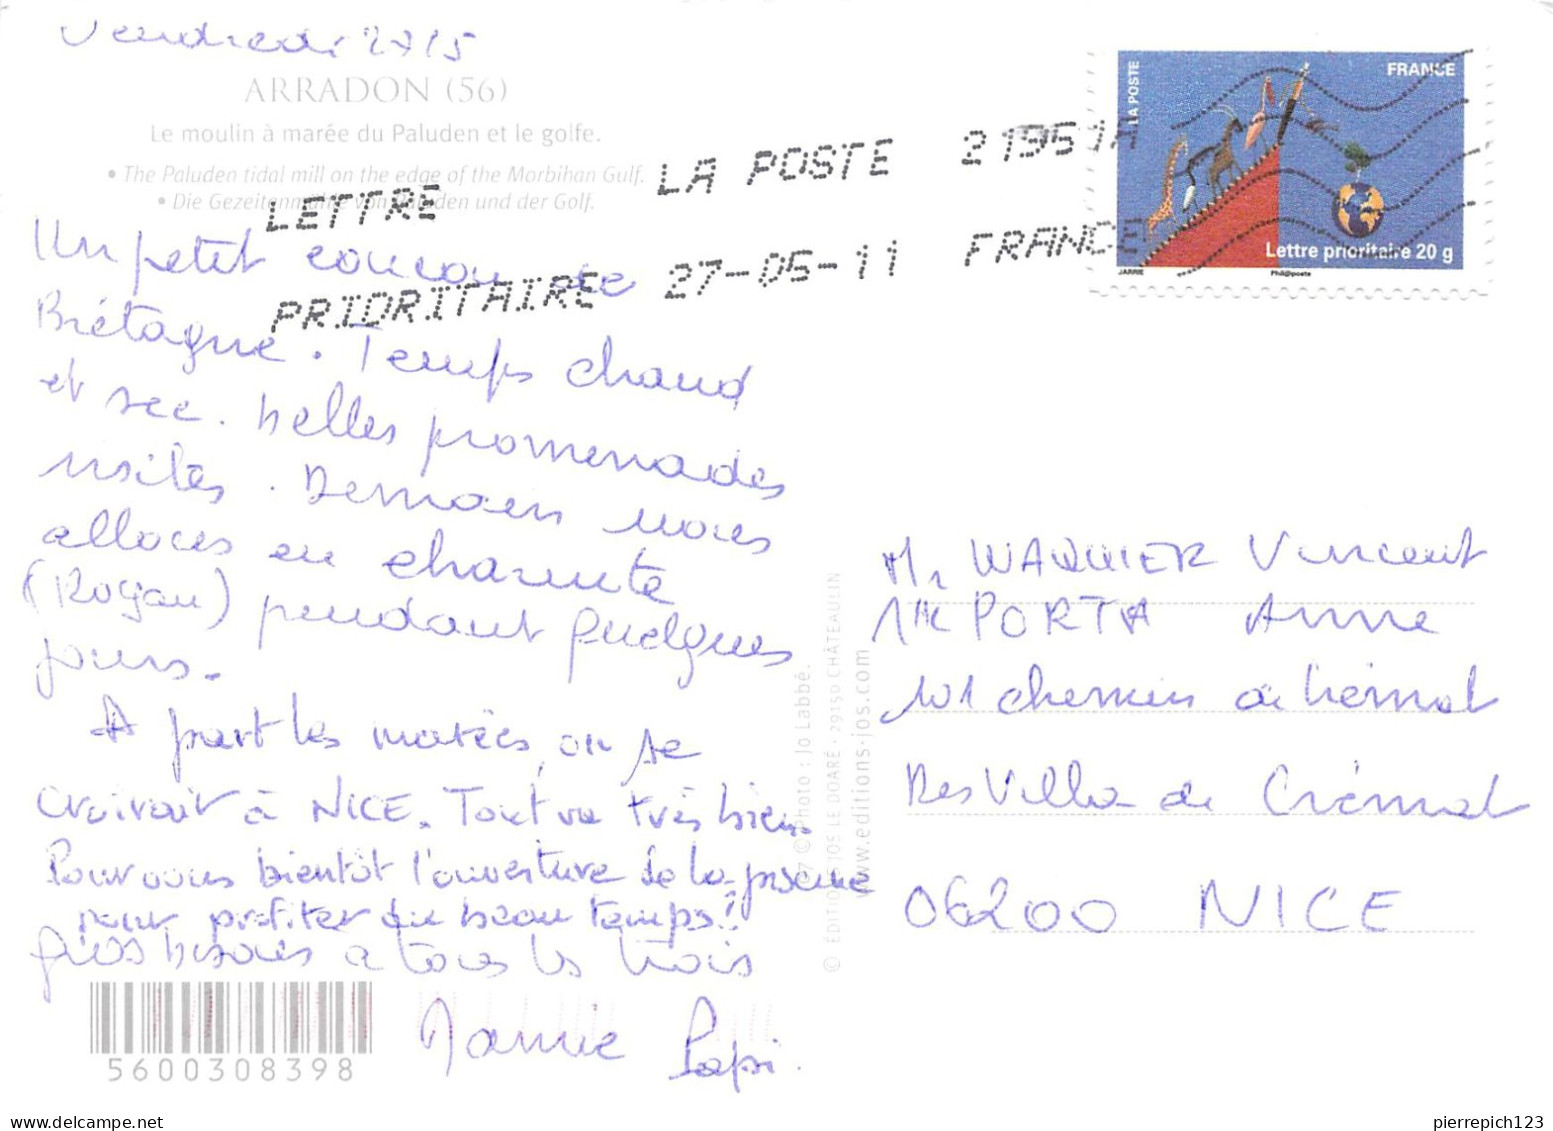 Vendredi 27/5
ARRADON (56)
Le moulin à marée du Paluden et le golfe.
• The Paluden tidal mill on the edge of the Morbihan Gulf.
• Die Gezeitenmühle von Paluden und der Golf.
LETTRE
PRIORITAIRE
LA POSTE
27-05-11
21951A
FRANCE
LA POSTE
FRANCE
Lettre prioritaire 20 g
JARRIE
Phil@poste
Un petit coucou de
Brétagne. Temps chaud
et sec. Belles promenades
visites. Demain nous
allons en charente
(Royan) pendant quelques
jours.
A part les marées, on se
croirait à NICE. Tout va très bien.
Pour vous bientôt l'ouverture de la piscine
pour profiter du beau temps!
gros bisous a tous les trois
Mamie Papi.
5600308398
© ÉDITIONS JOS LE DOARÉ - 29150 CHÂTEAULIN
© Photo : Jo Labbé.
www.editions-jos.com
Mr WAQUIER Vincent
Mle PORTA Anne
101 chemin de Crémat
Res Villa de Crémat
06200 NICE
pierrepich123